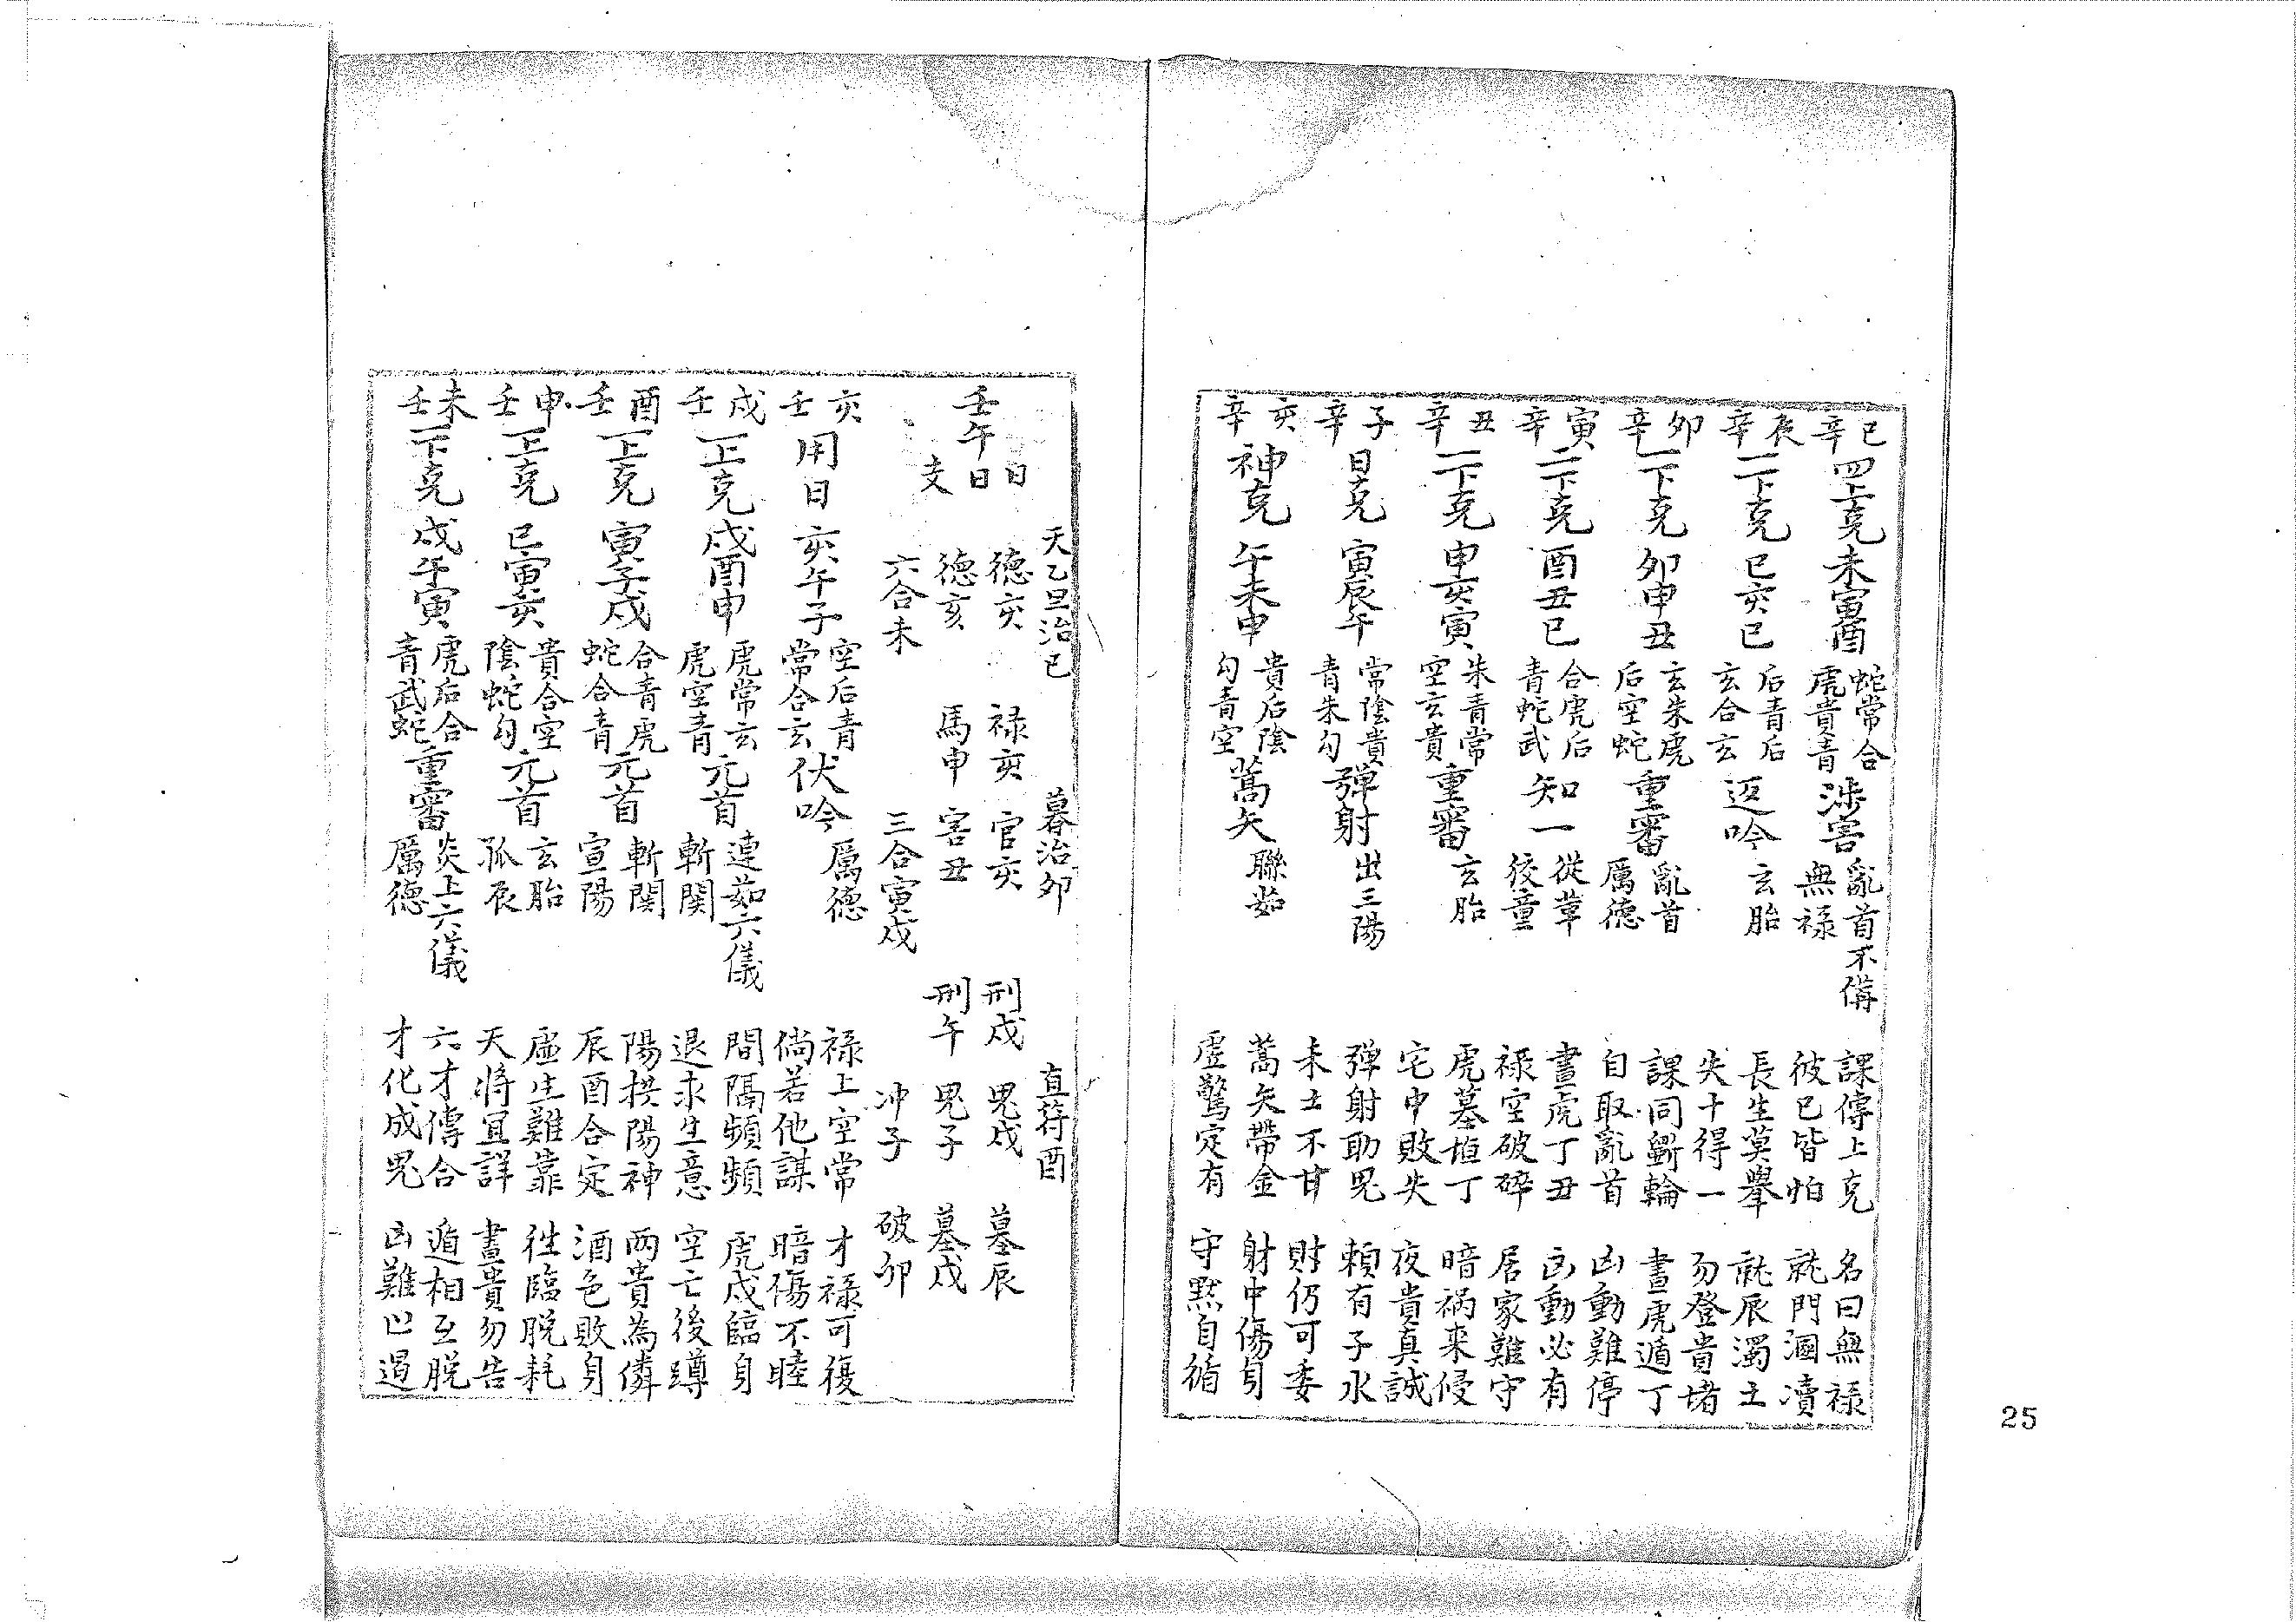 巳辛 四上克 未寅酉 蛇常合 虎貴青 涉害 亂首不備 無祿 課傳上克 名曰無祿
彼已皆怕 就門溷瀆
辰辛 二下克 巳亥巳 后青后 玄合玄 返吟 玄胎 長生莫舉 就辰濁土
失十得一 勿登貴堵
卯辛 一下克 卯申丑 玄朱虎 后空蛇 重審 亂首 厲德 課同斲輪 晝虎遁丁
自取亂首 凶動難停
寅辛 二下克 酉丑巳 合虎后 青蛇武 知一 從革 狡童 晝虎丁丑 凶動必有
祿空破碎 居家難守
丑辛 一下克 申亥寅 朱青常 空玄貴 重審 玄胎 虎墓垣丁 暗祸来侵
宅中敗失 夜貴真誠
子辛 日克 寅辰午 常陰貴 青朱勾 彈射 出三陽 彈射助鬼 賴有子水
未土不甘 財仍可委
亥辛 神克 午未申 貴后陰 勾青空 蒿矢 聯茹 蒿矢帶金 射中傷身
虛驚定有 守黙自循
天乙旦治巳 暮治卯 直符酉
日 德亥 祿亥 官亥 刑戌 鬼戌 墓辰
壬午日
支 德亥 馬申 害丑 刑午 鬼子 墓戌
六合未 三合寅戌 冲子 破卯
亥壬 用日 亥午子 空后青 常合玄 伏吟 厲德 祿上空常 才祿可復
倘若他謀 暗傷不睦
戌壬 一上克 戌酉申 虎常玄 虎空青 元首 連茹六儀 斬関 間隔頻頻 虎戌臨身
退求生意 空亡後蹲
酉壬 一上克 寅子戌 合青虎 蛇合青 元首 斬関 宣陽 陽拱陽神 两貴為憐
辰酉合定 酒色敗身
申壬 一上克 巳寅亥 貴合空 陰蛇勾 元首 玄胎 孤辰 虛生難靠 徃臨脱耗
天將宜詳 晝貴勿告
未壬 一下克 戌午寅 虎后合 青武蛇 重審 炎上六儀 厲德 六才傳合 遁相互脱
才化成鬼 凶難已過
25